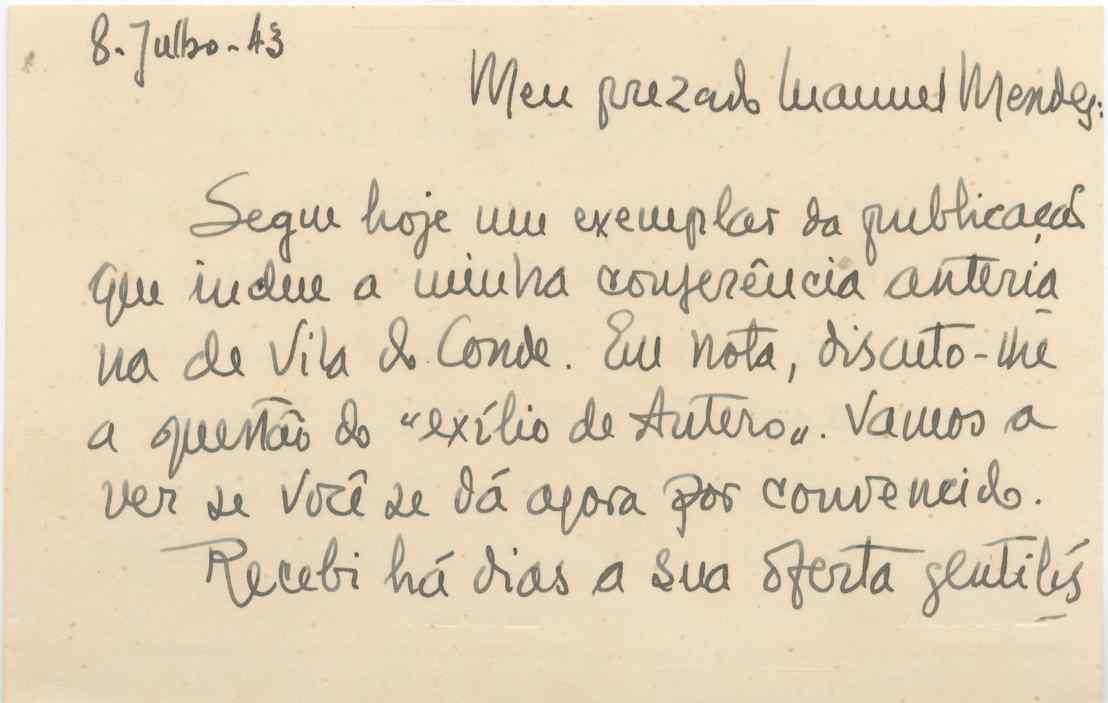 8. Julho - 43
Meu prezado Manuel Mendes:
Segue hoje um exemplar da publicação
que inclue a minha conferência anteria
na de Vila do Conde. Em nota, discuto-lhe
a questão do "exílio de Antero". Vamos a
ver se você se dá agora por convencido.
Recebi há dias a sua oferta gentilís